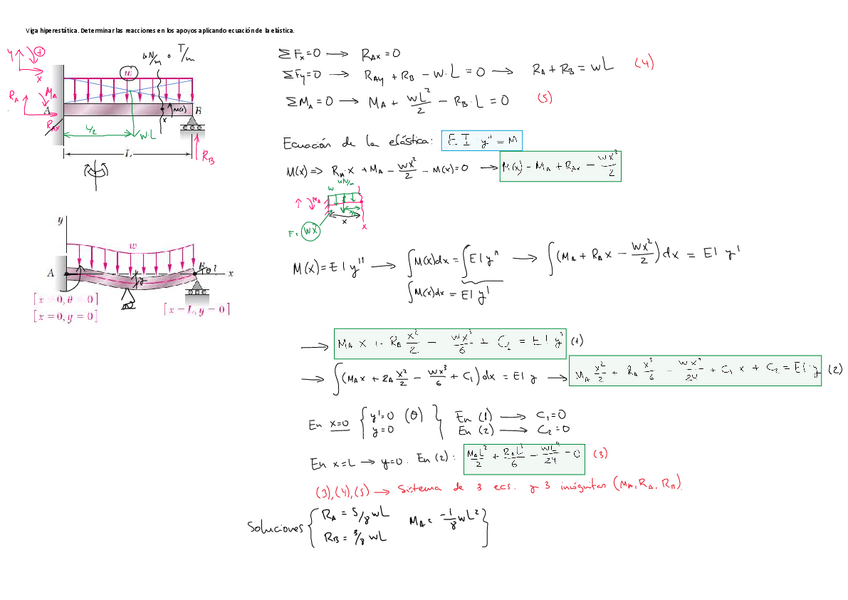 Viga hiperestática. Determinar las reacciones en los apoyos aplicando ecuación de la elástica.
y
x
kN/m = T/m
w
R_A
M_A
A
R_Ax
M(x)
x
B
L/2
wL
L
R_B
ΣFx=0 → R_Ax = 0
ΣFy=0 → R_Ay + R_B - w·L = 0 → R_A + R_B = wL (4)
ΣM_A = 0 → M_A + wL²/2 - R_B·L = 0 (5)
Ecuación de la elástica: E I y'' = M
M(x) => R_A·x + M_A - wx²/2 - M(x)=0 → M(x) = M_A + R_Ax - wx²/2
w kN/m
M_A
x
F = wx
x
M(x) = EI y'' → ∫M(x)dx = ∫EI y'' → ∫(M_A + R_A x - wx²/2)dx = EI y'
∫M(x)dx = EI y'
y
w
A
B
x
[x = 0, θ = 0]
[x = 0, y = 0]
[x = L, y = 0]
→ M_A x + R_A x²/2 - wx³/6 + C₁ = EI y' (1)
→ ∫(M_A x + R_A x²/2 - wx³/6 + C₁)dx = EI y → M_A x²/2 + R_A x³/6 - wx⁴/24 + C₁ x + C₂ = EI·y (2)
En x=0 { y'=0 (θ) y=0 } En (1) → C₁=0
En (2) → C₂=0
En x=L → y=0. En (2): M_AL²/2 + R_AL³/6 - wL⁴/24 = 0 (3)
(3),(4),(5) → Sistema de 3 ecs. y 3 incógnitas (M_A, R_A, R_B)
Soluciones { R_A = 5/8 wL M_A = -1/8 wL²
R_B = 3/8 wL }